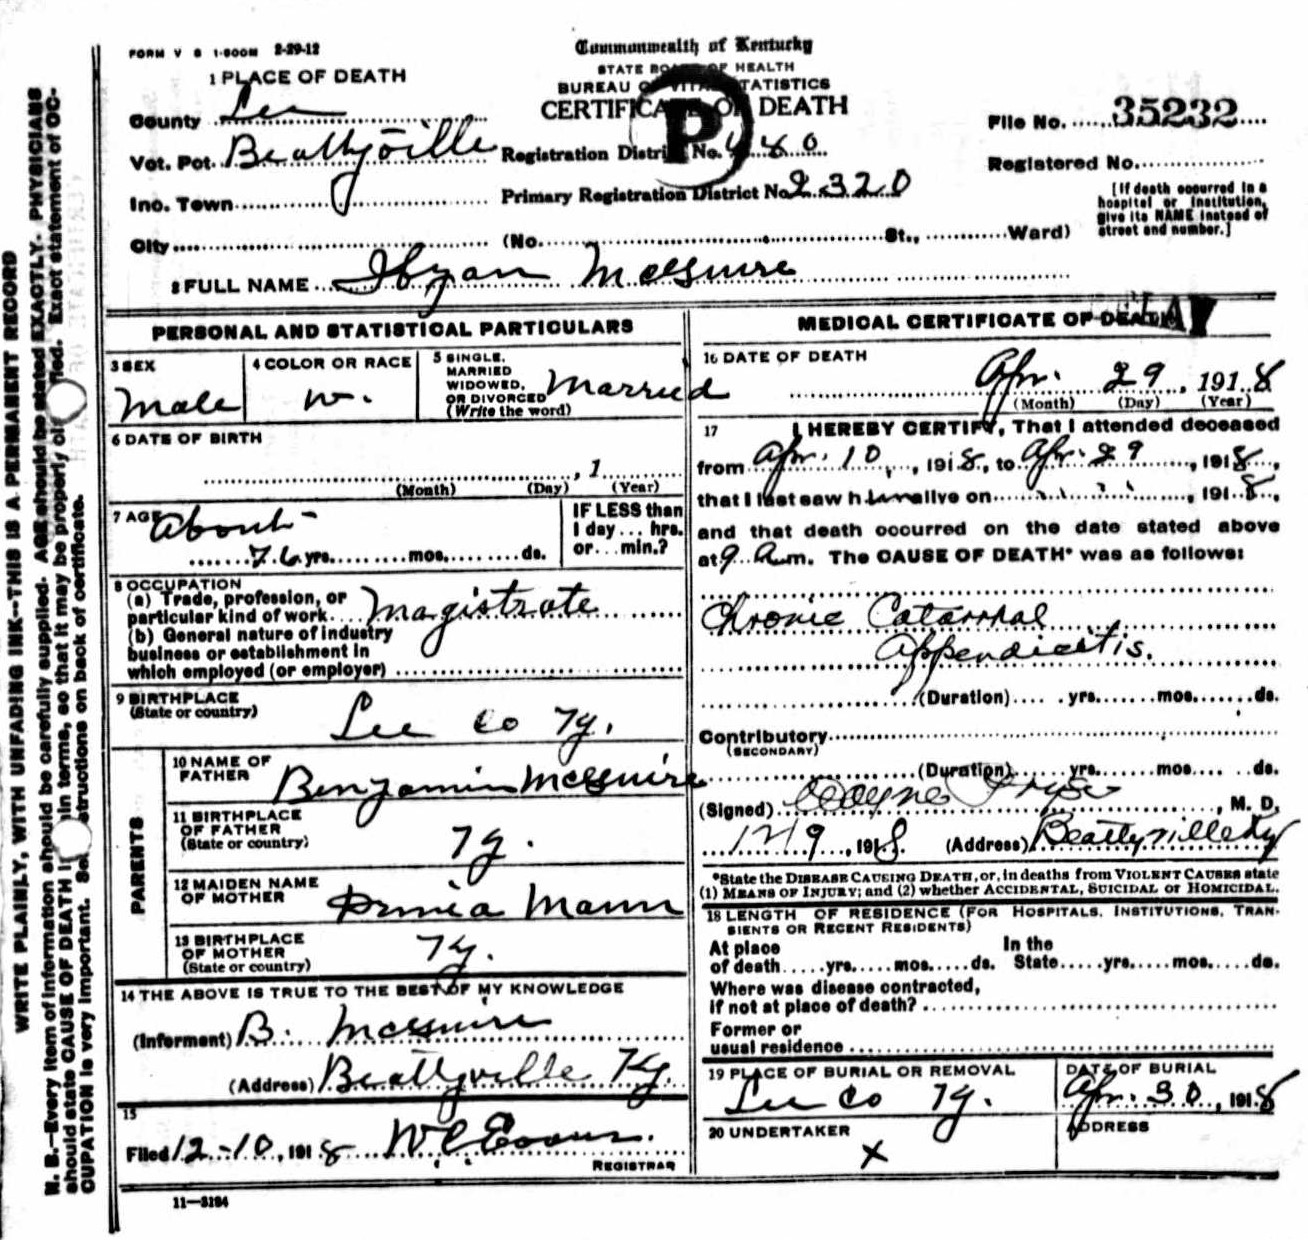 FORM V S 1-500M 2-29-12
Commonwealth of Kentucky
STATE BOARD OF HEALTH
BUREAU OF VITAL STATISTICS
CERTIFICATE OF DEATH
P
1 PLACE OF DEATH
County Lee
Vot. Pct. Beattyville
Registration District No. 480
File No. 35232
Registered No.
Inc. Town
Primary Registration District No. 2320
[If death occurred in a hospital or institution, give its NAME instead of street and number.]
City (No. St., Ward)
2 FULL NAME McGuire
PERSONAL AND STATISTICAL PARTICULARS
3 SEX
Male
4 COLOR OR RACE
W.
5 SINGLE, MARRIED WIDOWED, OR DIVORCED (Write the word)
Married
6 DATE OF BIRTH
, 1
(Month) (Day) (Year)
7 AGE About
76 yrs. mos. ds.
IF LESS than 1 day ... hrs. or ... min.?
8 OCCUPATION
(a) Trade, profession, or particular kind of work Magistrate
(b) General nature of industry business or establishment in which employed (or employer)
9 BIRTHPLACE
(State or country)
Lee Co Ky.
PARENTS
10 NAME OF FATHER Benjamin McGuire
11 BIRTHPLACE OF FATHER (State or country) Ky.
12 MAIDEN NAME OF MOTHER Mann
13 BIRTHPLACE OF MOTHER (State or country) Ky.
14 THE ABOVE IS TRUE TO THE BEST OF MY KNOWLEDGE
(Informant) B. McGuire
(Address) Beattyville Ky.
15
Filed 12-10, 1918 W C Evans.
REGISTRAR
11-3184
MEDICAL CERTIFICATE OF DEATH
16 DATE OF DEATH
Apr. 29, 1918
(Month) (Day) (Year)
17 I HEREBY CERTIFY, That I attended deceased
from Apr. 10, 1918, to Apr. 29, 1918,
that I last saw him alive on " " ", 1918,
and that death occurred on the date stated above
at 9 a.m. The CAUSE OF DEATH* was as follows:
Chronic Catarrhal
Appendicitis.
(Duration) yrs. mos. ds.
Contributory
(SECONDARY)
(Duration) yrs. mos. ds.
(Signed) , M. D.
12/9, 1918. (Address) Beattyville Ky
*State the DISEASE CAUSING DEATH, or, in deaths from VIOLENT CAUSES state
(1) MEANS OF INJURY; and (2) whether ACCIDENTAL, SUICIDAL or HOMICIDAL.
18 LENGTH OF RESIDENCE (FOR HOSPITALS, INSTITUTIONS, TRANSIENTS OR RECENT RESIDENTS)
At place of death yrs. mos. ds. In the State yrs. mos. ds.
Where was disease contracted, if not at place of death?
Former or usual residence
19 PLACE OF BURIAL OR REMOVAL
Lee Co Ky.
DATE OF BURIAL
Apr. 30, 1918
20 UNDERTAKER
X
ADDRESS
WRITE PLAINLY, WITH UNFADING INK--THIS IS A PERMANENT RECORD
N. B.--Every item of information should be carefully supplied. AGE should be stated EXACTLY. PHYSICIANS
should state CAUSE OF DEATH in plain terms, so that it may be properly classified. Exact statement of OC-
CUPATION is very important. See instructions on back of certificate.